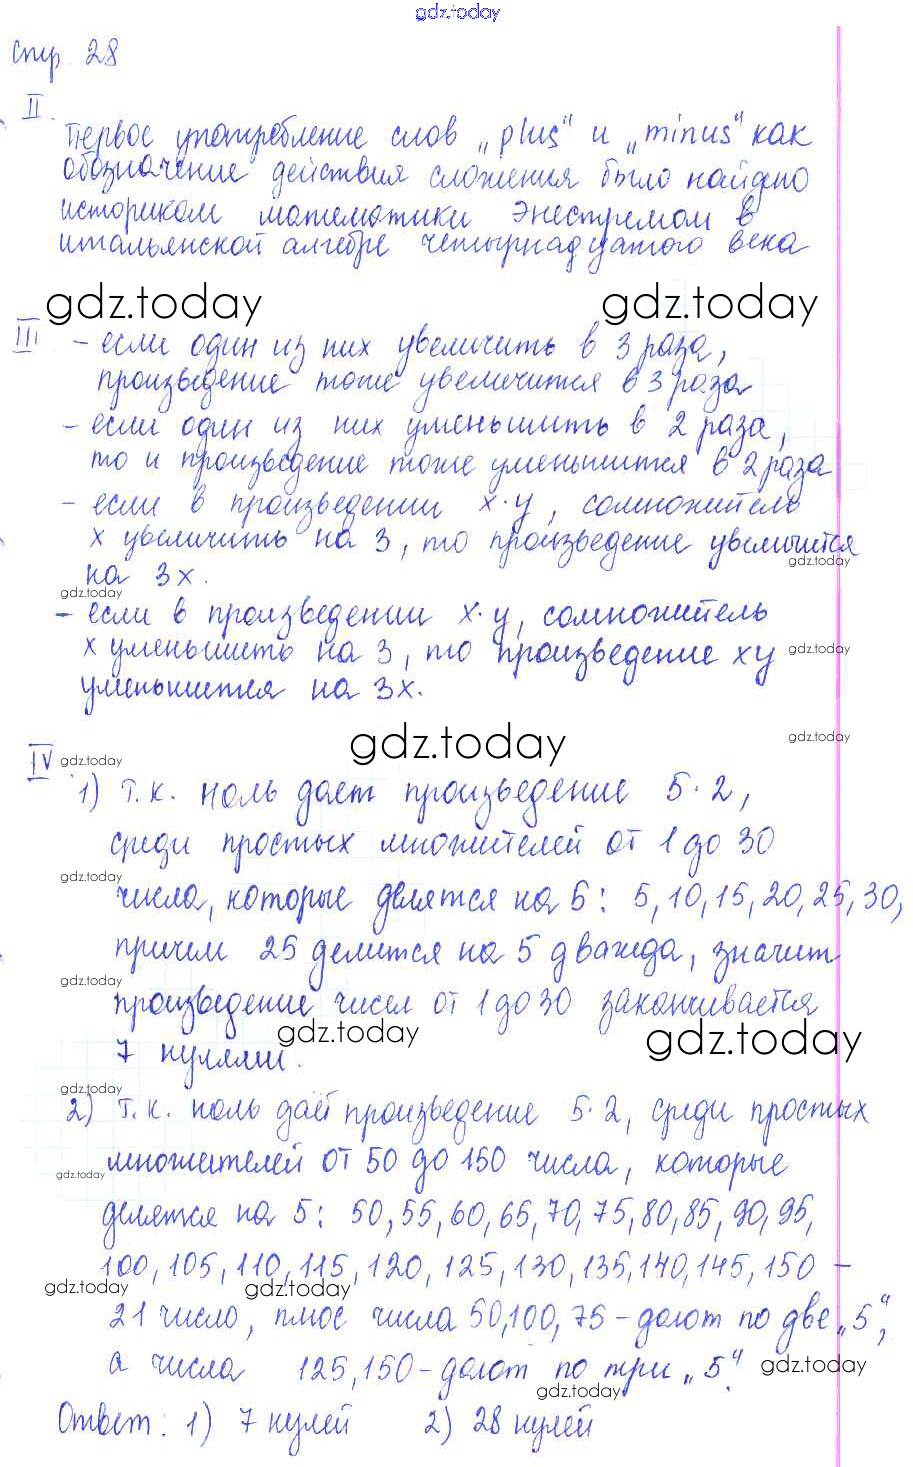 gdz.today
стр. 28
II.
Первое употребление слов „plus“ и „minus“ как
обозначение действия сложения было найдено
историком математики Энестремом в
итальянской алгебре четырнадцатого века
gdz.today gdz.today
III - если один из них увеличить в 3 раза,
произведение тоже увеличится в 3 раза
- если один из них уменьшить в 2 раза,
то и произведение тоже уменьшится в 2 раза
- если в произведении x·y, сомножитель
x увеличить на 3, то произведение увеличится
gdz.today
на 3x.
gdz.today
- если в произведении x·y, сомножитель
x уменьшить на 3, то произведение xy
gdz.today
уменьшится на 3x.
gdz.today gdz.today
IV gdz.today
1) т.к. ноль дает произведение 5·2,
среди простых множителей от 1 до 30
gdz.today
числа, которые делятся на 5: 5, 10, 15, 20, 25, 30,
причем 25 делится на 5 дважды, значит
gdz.today
произведение чисел от 1 до 30 заканчивается
gdz.today gdz.today
7 нулями.
gdz.today
2) т.к. ноль даёт произведение 5·2, среди простых
множителей от 50 до 150 числа, которые
gdz.today
делятся на 5: 50, 55, 60, 65, 70, 75, 80, 85, 90, 95,
100, 105, 110, 115, 120, 125, 130, 135, 140, 145, 150 -
gdz.today gdz.today
21 число, плюс числа 50, 100, 75 - дают по две „5“,
а числа 125, 150 - дают по три „5“.
gdz.today gdz.today
Ответ: 1) 7 нулей 2) 28 нулей